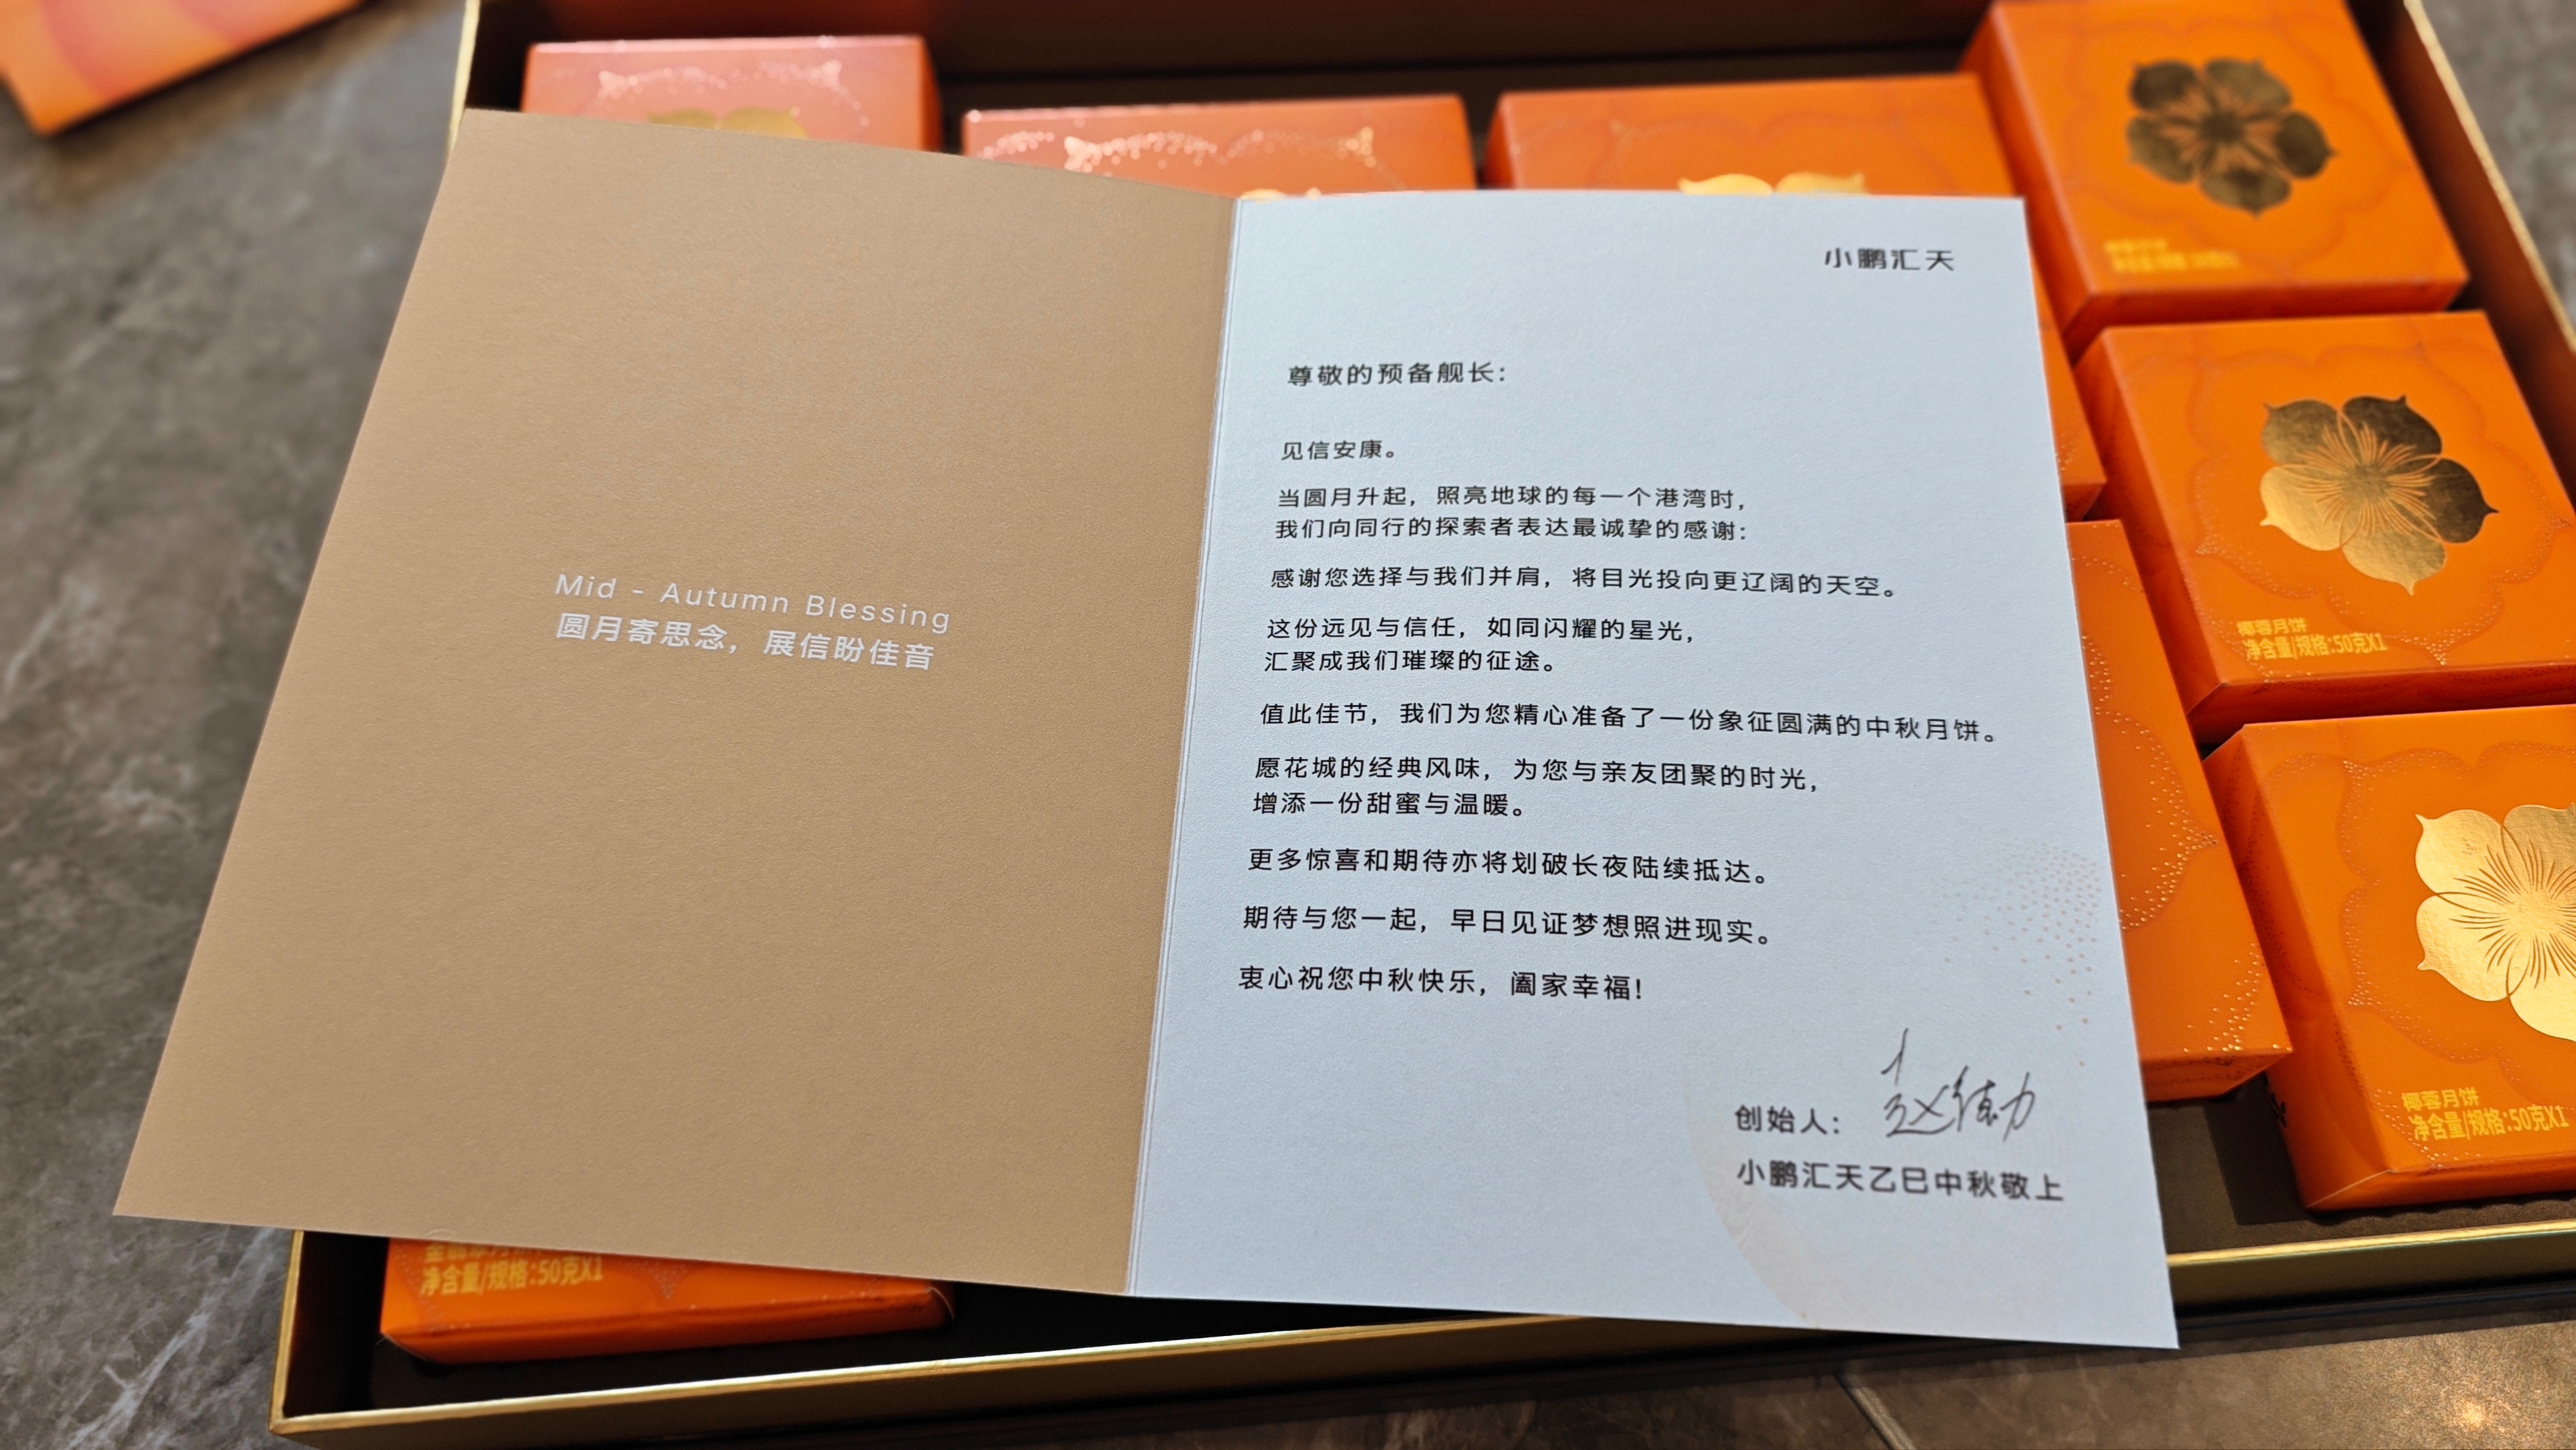 Mid - Autumn Blessing
圆月寄思念，展信盼佳音
小鹏汇天
尊敬的预备舰长：
见信安康。
当圆月升起，照亮地球的每一个港湾时，
我们向同行的探索者表达最诚挚的感谢：
感谢您选择与我们并肩，将目光投向更辽阔的天空。
这份远见与信任，如同闪耀的星光，
汇聚成我们璀璨的征途。
值此佳节，我们为您精心准备了一份象征圆满的中秋月饼。
愿花城的经典风味，为您与亲友团聚的时光，
增添一份甜蜜与温暖。
更多惊喜和期待亦将划破长夜陆续抵达。
期待与您一起，早日见证梦想照进现实。
衷心祝您中秋快乐，阖家幸福！
创始人：赵德力
小鹏汇天乙巳中秋敬上
椰蓉月饼
净含量/规格：50克X1
椰蓉月饼
净含量/规格：50克X1
净含量/规格：50克X1